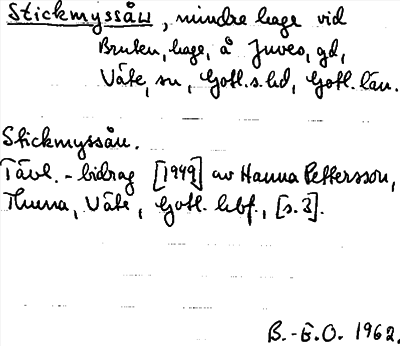 Stickmyssåu, mindre hage vid
Bruten, hage, å Juves, gd,
Väte, sn, Gotl. s. hd, Gotl. län.
Stickmyssåu.
Tävl.-bidrag [1949] av Hanna Pettersson,
Thuna, Väte, Gotl. hbf., [s. 3].
B.-E.O. 1962.